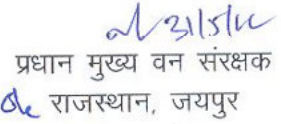 31/5/12
प्रधान मुख्य वन संरक्षक
राजस्थान, जयपुर